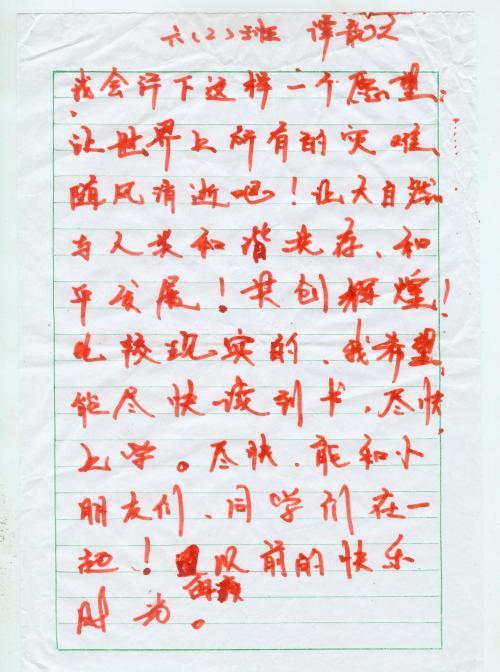 六(2)班 谭
我会许下这样一个愿望:
让世界上所有的灾难、
随风消逝吧!让大自然
与人类和谐共存、和
平发展!共创辉煌!
比较现实的、我希望
能尽快读到书,尽快
上学。尽快、能和小
朋友们、同学们在一
起!以前的快乐
时光。